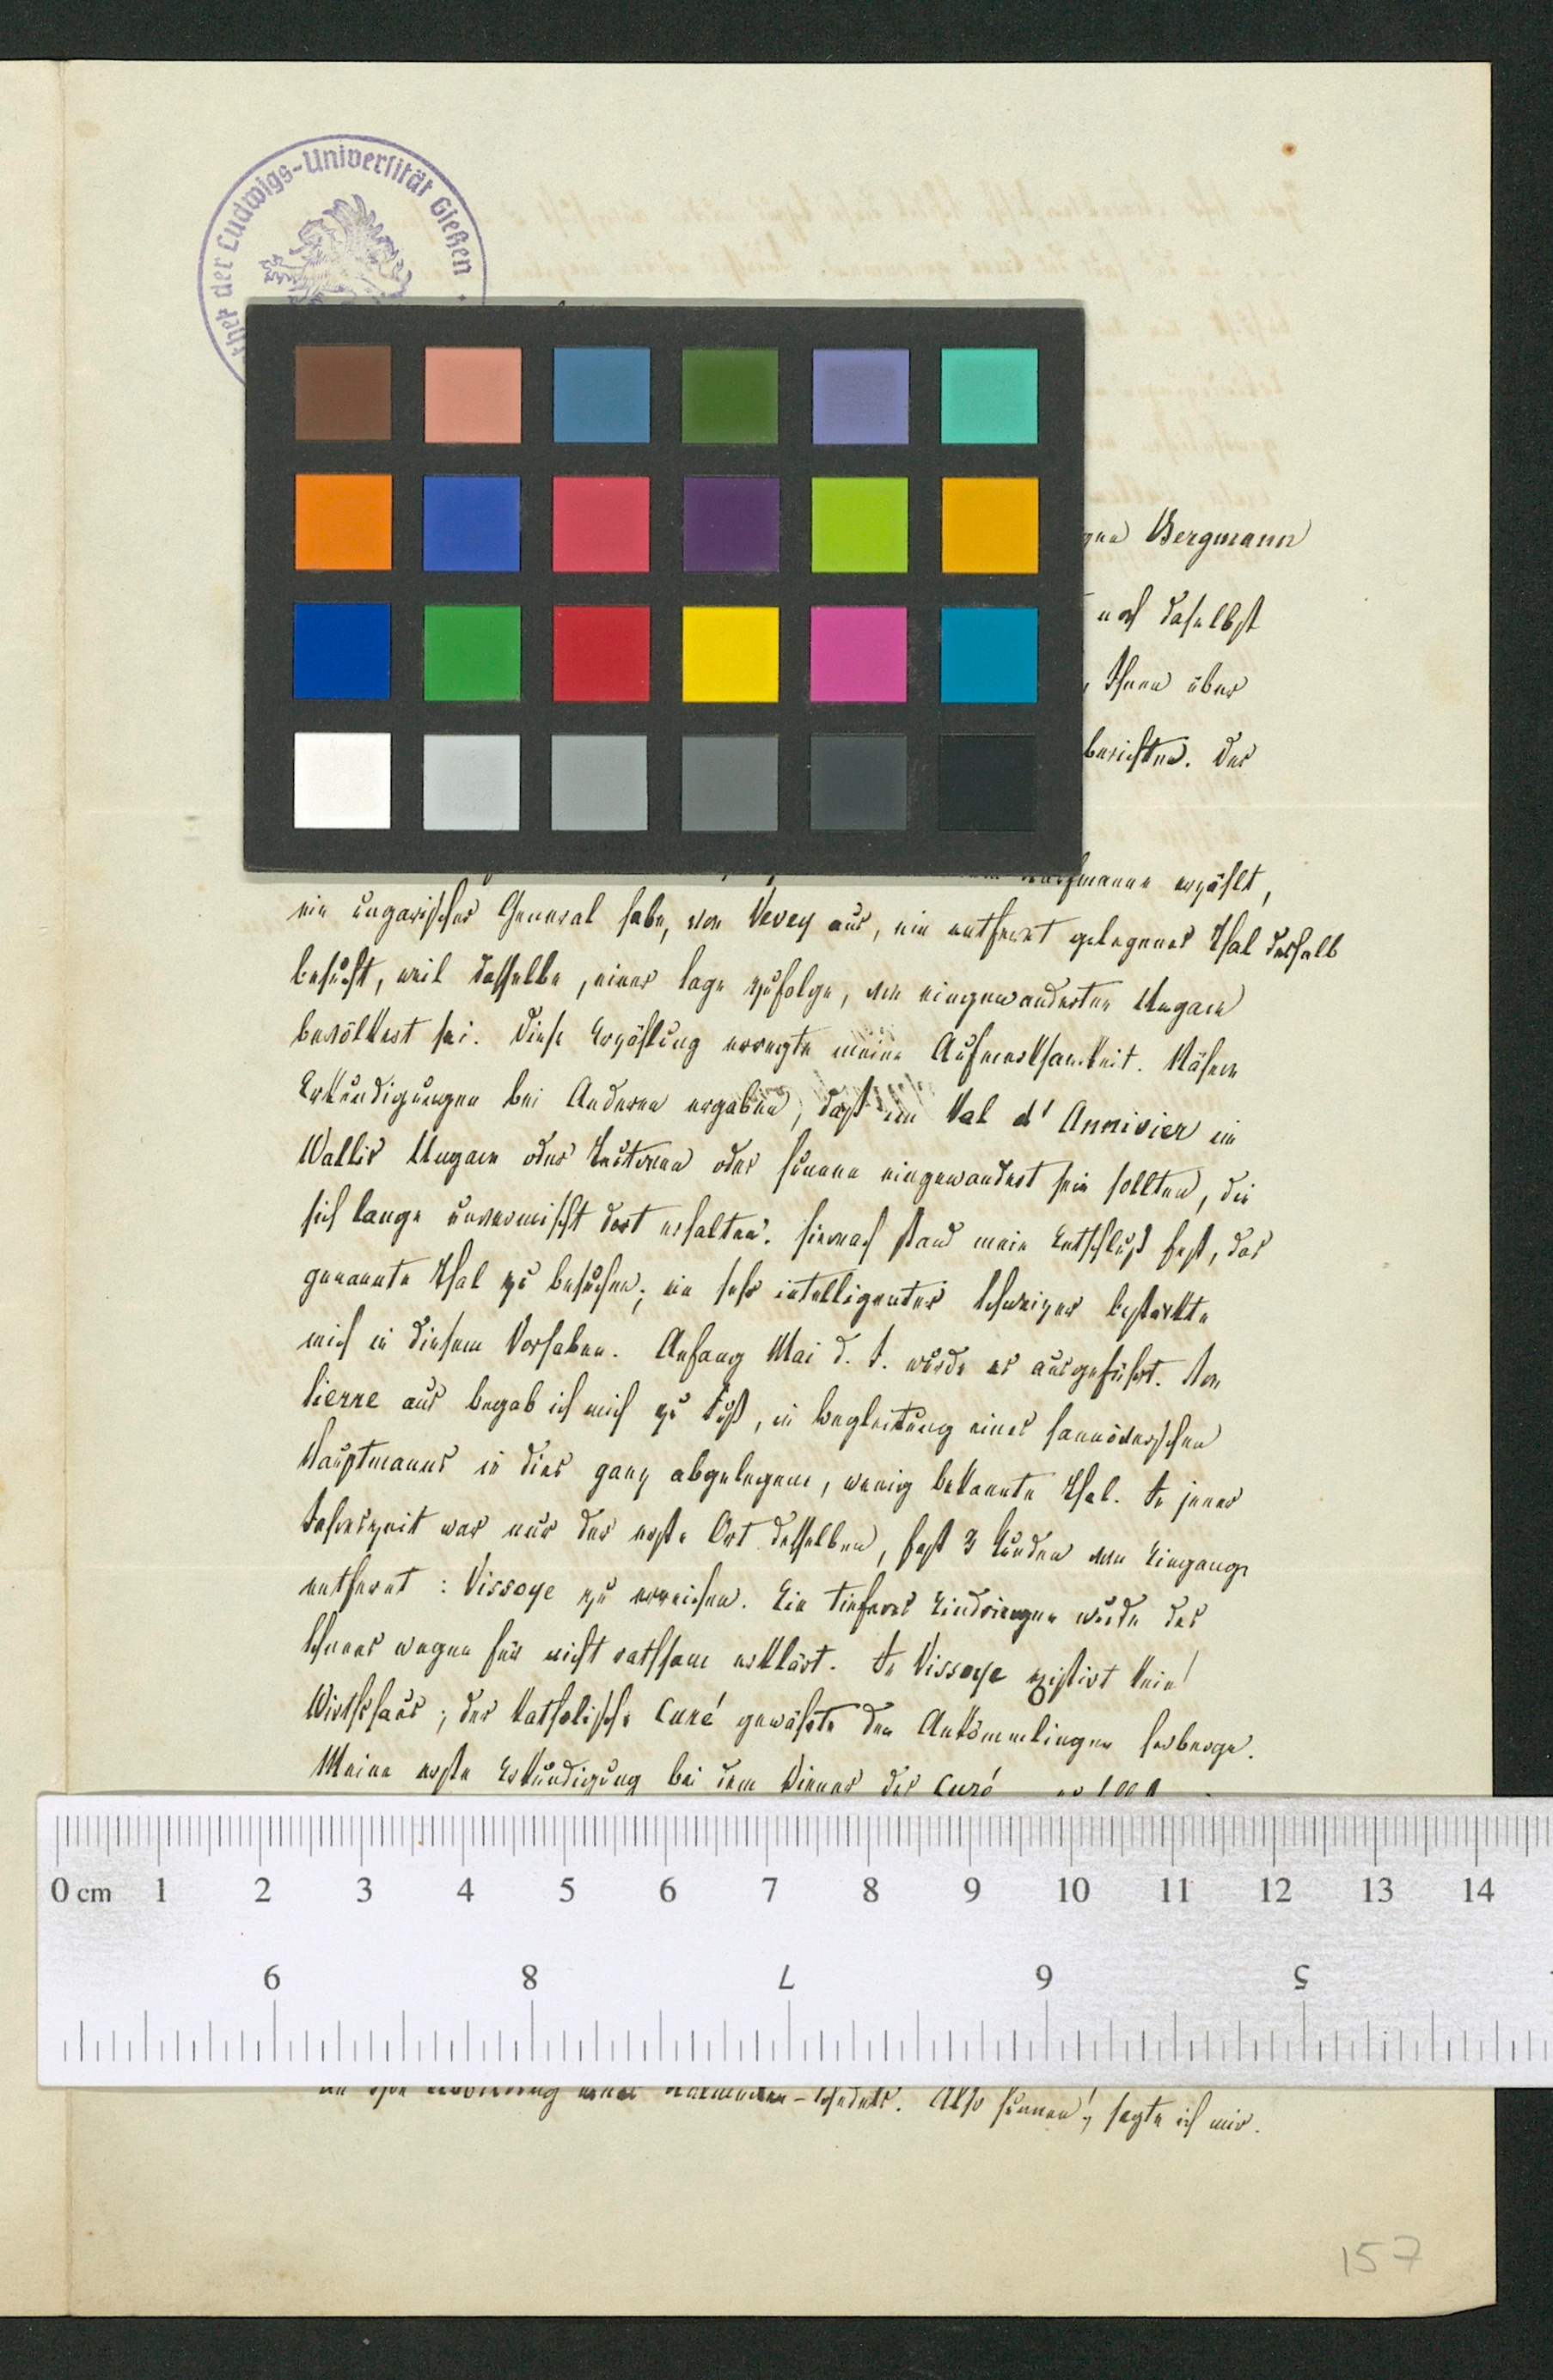 der Ludwigs-Universität Gießen
Bergmann
noch daselbst
Ihnen über
berichten. Der
erzählt,
ein ungarischer General habe, von Vevey aus, ein entfernt gelegenes Thal deshalb
besucht, weil dasselbe, einer Sage zufolge, von eingewanderten Ungarn
bevölkert sei. Diese Erzählung erregte meine Aufmerksamkeit. Nähere
Erkundigungen bei Anderen ergaben, daß im Val d'Annivier im
Wallis Ungarn oder oder Hunnen eingewandert sein sollten, die
sich lange unvermischt dort erhalten. Hiernach stand mein Entschluß fest, das
genannte Thal zu besuchen; ein sehr intelligenter Schweizer bestärkte
mich in diesem Vorhaben. Anfang Mai d. J. wurde es ausgeführt. Von
Sierre aus begab ich mich zu Fuß, in Begleitung eines hannöverschen
Hauptmanns in dies ganz abgelegene, wenig bekannte Thal. In jener
Jahreszeit war nur der erste Ort desselben, fast 3 Stunden vom Eingange
entfernt: Vissoye zu erreichen. Ein tieferes Eindringen wurde des
Schnees wegen für nicht rathsam erklärt. In Vissoye existirt kein
Wirthshaus; der katholische Curé gewährte den Ankömmlingen Herberge.
Meine erste Erkundigung bei dem Diener des Curé
Schädels. Also Hunnen!, sagte ich mir.
157
0 cm 1 2 3 4 5 6 7 8 9 10 11 12 13 14
9 8 7 6 5